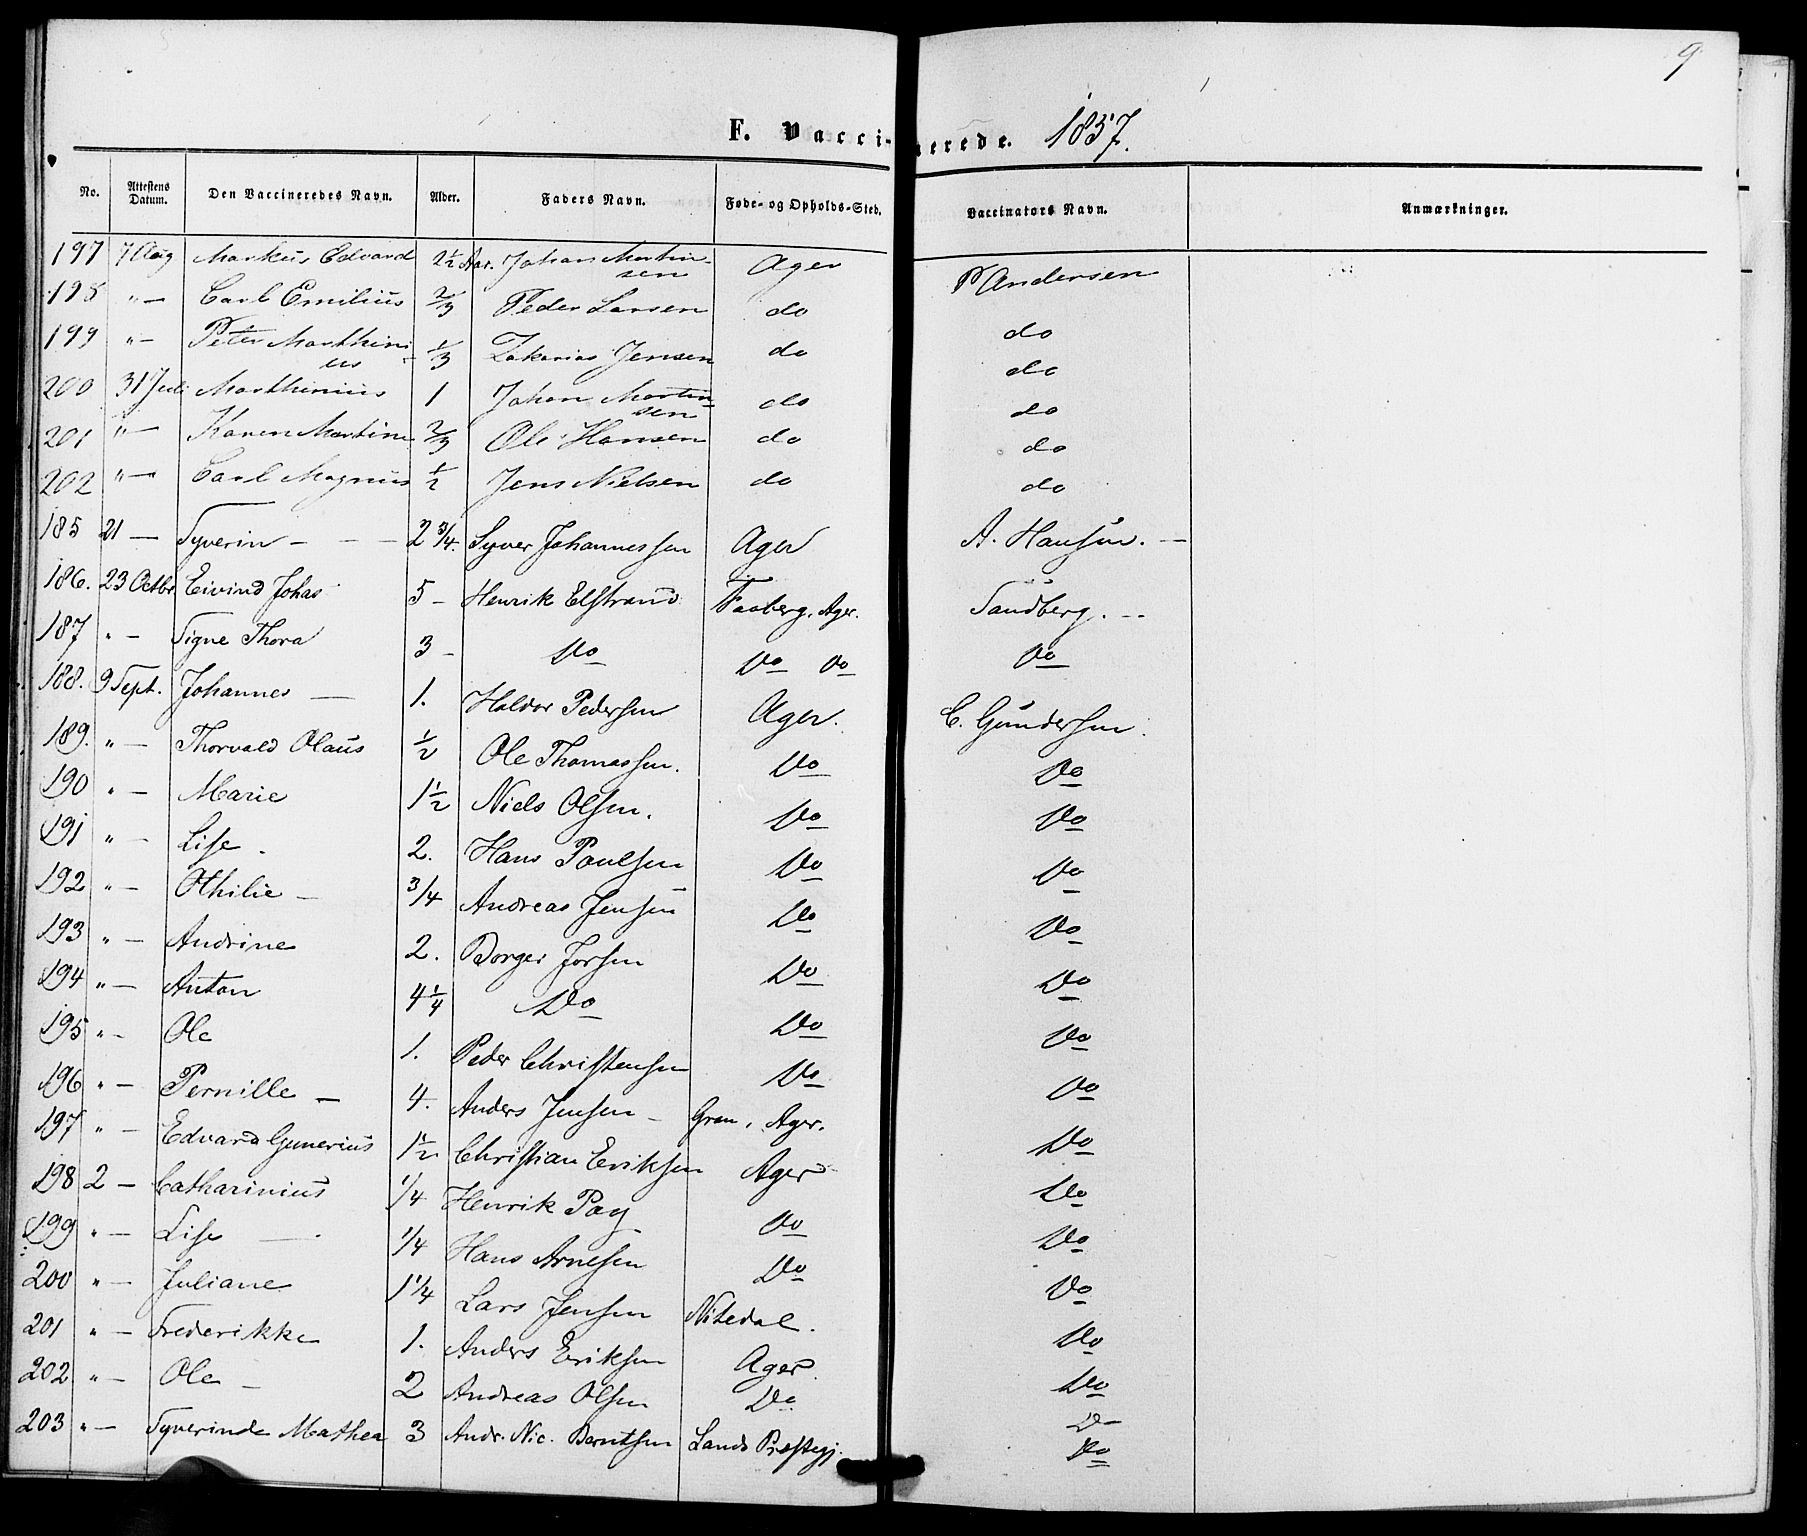 9
F. Vaccinerede. 1857.
No. Attestens Datum. Den Vaccineredes Navn. Alder. Faders Navn. Føde- og Opholds-Sted. Vaccinators Navn. Anmærkninger.
197 7 Aug Markus Edvard 2½ Aar. Johan Martinsen Ager P Andersen
198 " — Carl Emilius 2/3 Peder Larsen do do
199 " — Peter Marthinius 1/3 Zakarias Jensen do do
200 31 Juli Marthinius 1 Johan Martinsen do do
201 " — Karen Martine 2/3 Ole Hansen do do
202 " — Carl Magnus ½ Jens Nielsen do do
185 21 — Syverin - - - 2 3/4. Syver Johannessen Ager A. Hansen. —
186. 23 Octbr Eivind Johas 5 - Henrik Elstrand Faaberg, Ager. Sandberg. --
187 " - Signe Thora 3 - Do Do Do Do
188. 9 Sept. Johannes — 1. Haldor Pedersen Ager. C. Gundersen.
189. " — Thorvald Olaus ½ Ole Thomassen. Do Do
190 " — Marie 1½ Niels Olsen. Do Do
191 " — Lise - 2. Hans Paulsen Do Do
192 " — Othilie — 3/4 Andreas Jensen Do Do
193 " — Andrine 2. Borger Jorsen Do Do
194 " — Anton 4¼ Do Do Do
195 " - Ole 1. Peder Christensen Do Do
196 " — Pernille — 4. Anders Jensen — Gran, Ager. Do
197 " — Edvard Gunerius 1½ Christian Eriksen Ager Do
198 2 — Catharinius 1/4 Henrik Pay Do Do
199 " — Lise — 1/4 Hans Arnesen Do Do
200 " — Juliane 1 1/4 Lars Jensen Nitedal. Do
201 " — Frederikke 1. Anders Eriksen Ager. Do
202 " — Ole — 2 Andreas Olsen Do Do
203 " — Syverinde Mathea 3 Andr. Nic. Berntsen Lands Præstegj. Do